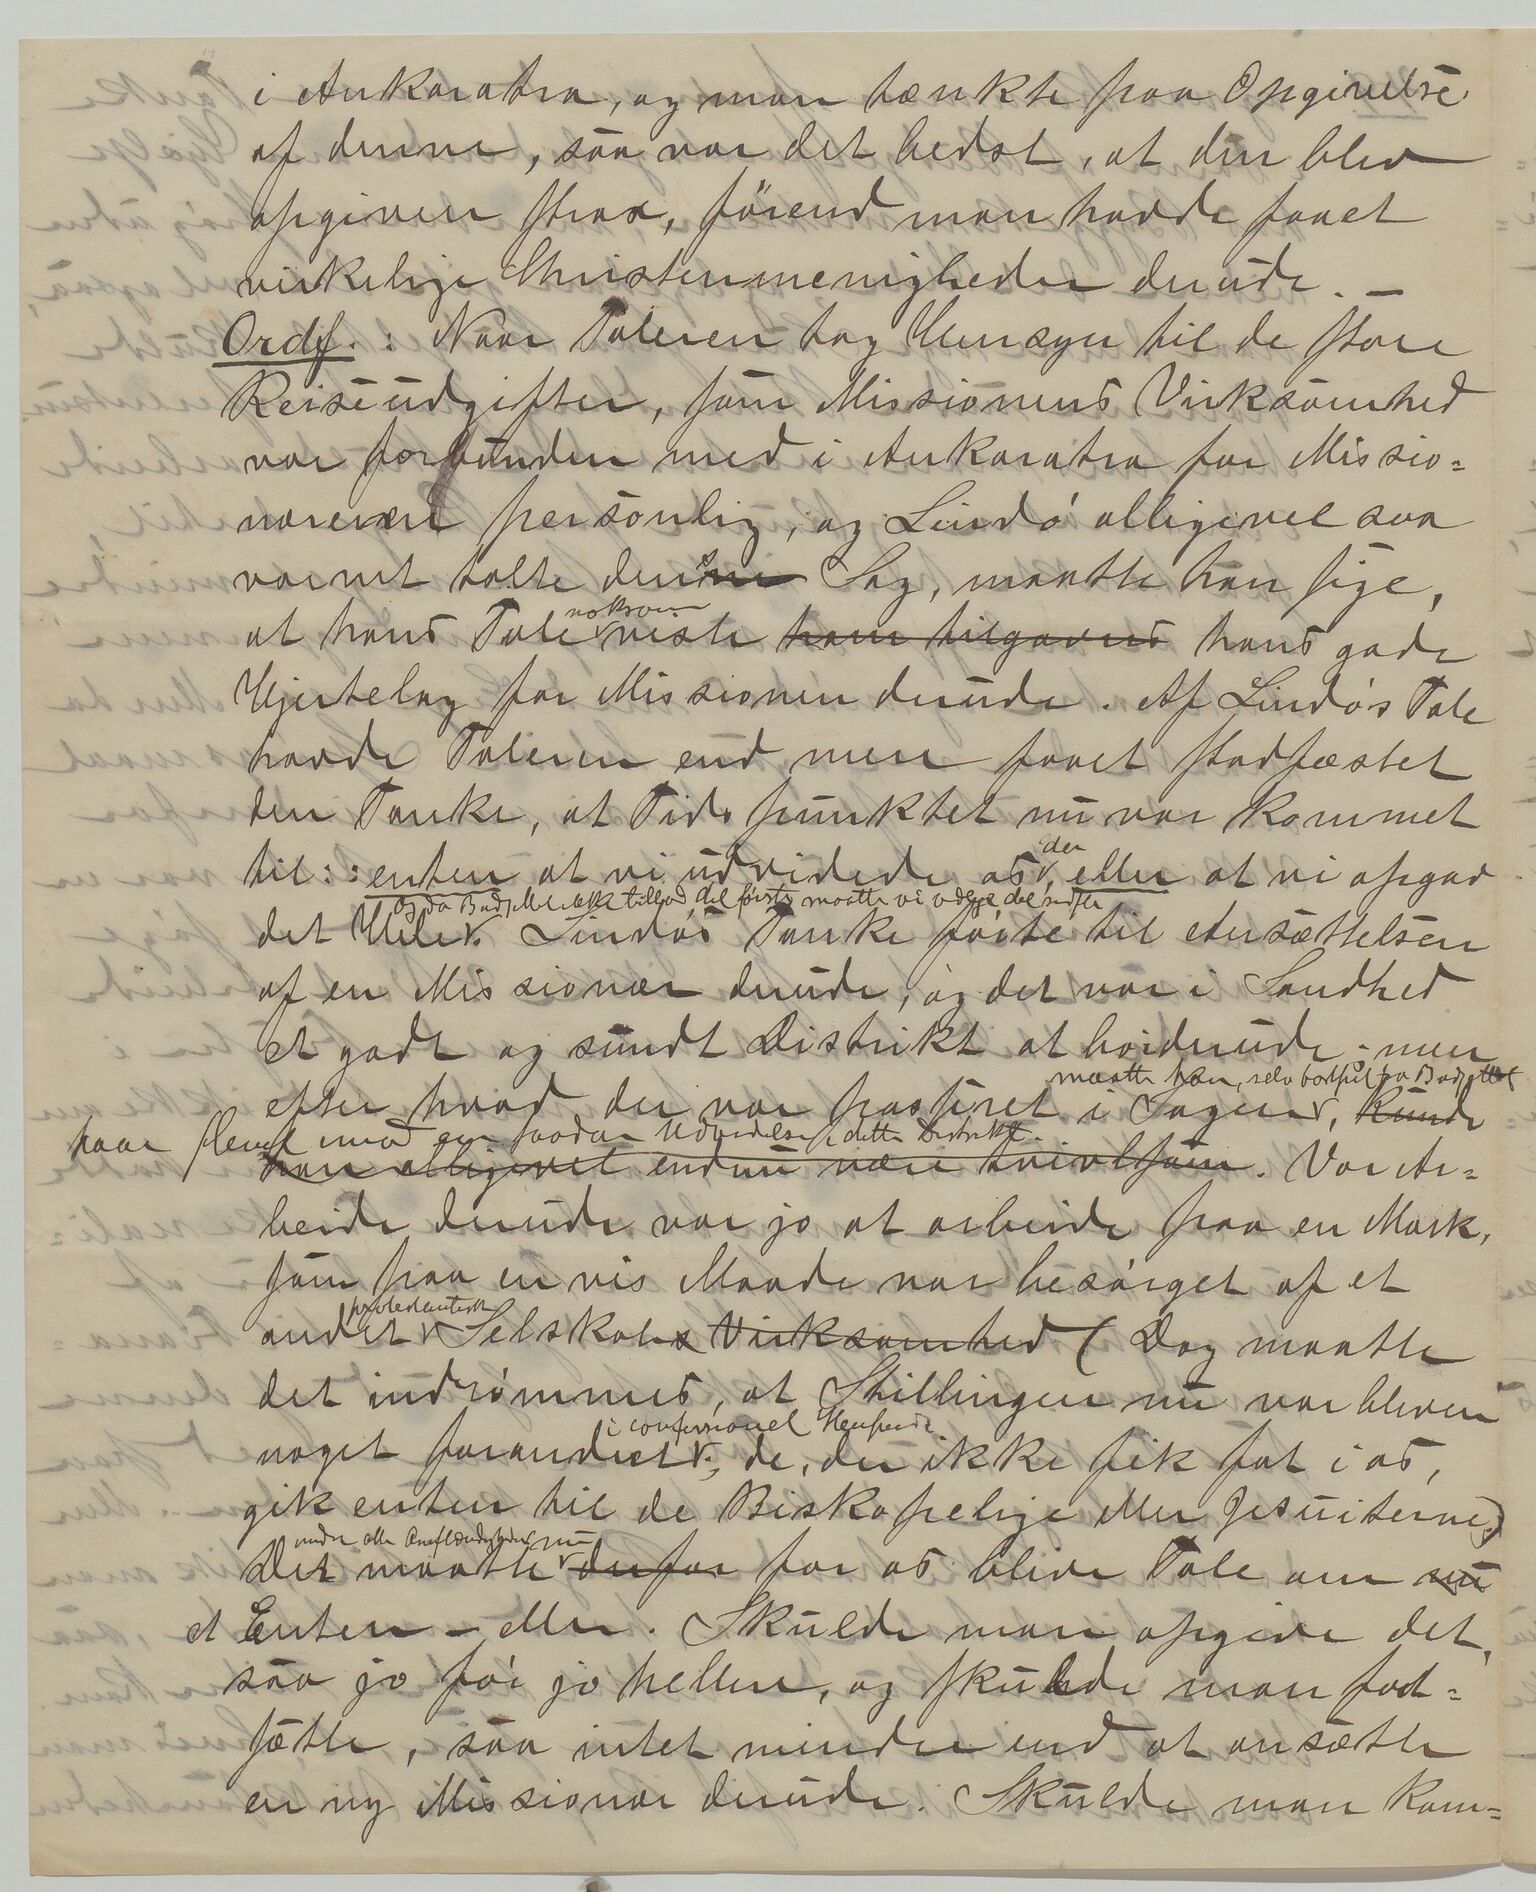 i Ankaratra, og man tænkte paa Opgivelse
af denne, saa var det bedst, at den blev
opgiven strax, förend man havde faaet
virkelige Christenmenigheder derude. —
Ordf.: Naar Taleren tog Hensyn til de store
Reiseudgifter, som Missionens Virksomhed
var forbunden med i Ankaratra for Missio=
næren personlig, og Lindö alligevel saa
varmt talte denne Sag, maatte han sige,
at hans Tale noksom viste ham tilgavns hans gode
Hjertelag for Missionen derude. Af Lindö's Tale
havde Taleren end mere faaet stadfæstet
den Tanke, at Tidspunktet nu var kommet
til: : enten at vi udvidede os der, eller at vi opgav
og da Budgettet ikke tillod det första maatte vi vælge det sidste
det Hele. Lindö's Tanke förte til Ansættelsen
af en Missionær derude, og det var i Sandhed
et godt og sundt Distrikt at bo i derude; men
maatte han, selv bortseet fra Budgettet
efter hvad der var passeret i Sagen, kunde
paa  imod en saadan Udvidelse i dette Distrikt.
han alligevel endnu være tvivlsom. Vor Ar=
beide derude var jo at arbeide paa en Mark,
som paa en vis Maade var besörget af et
andet protestantisk Selskabs Virksomhed (Dog maatte
det indrömmes, at Stillingen nu var bleven
noget forandret i confessionel Henseende; de, der ikke fik fat i os,
gik enten til de Biskopelige eller Jesuiterne.)
under alle Omstændigheder nu
Det maatte derfor for os blive Tale om nu
et Enten – eller. Skulde man opgive det,
saa jo för jo hellere, og skulde man fort=
sætte, saa intet mindre end at ansætte
en ny Missionær derude. Skulde man kom=